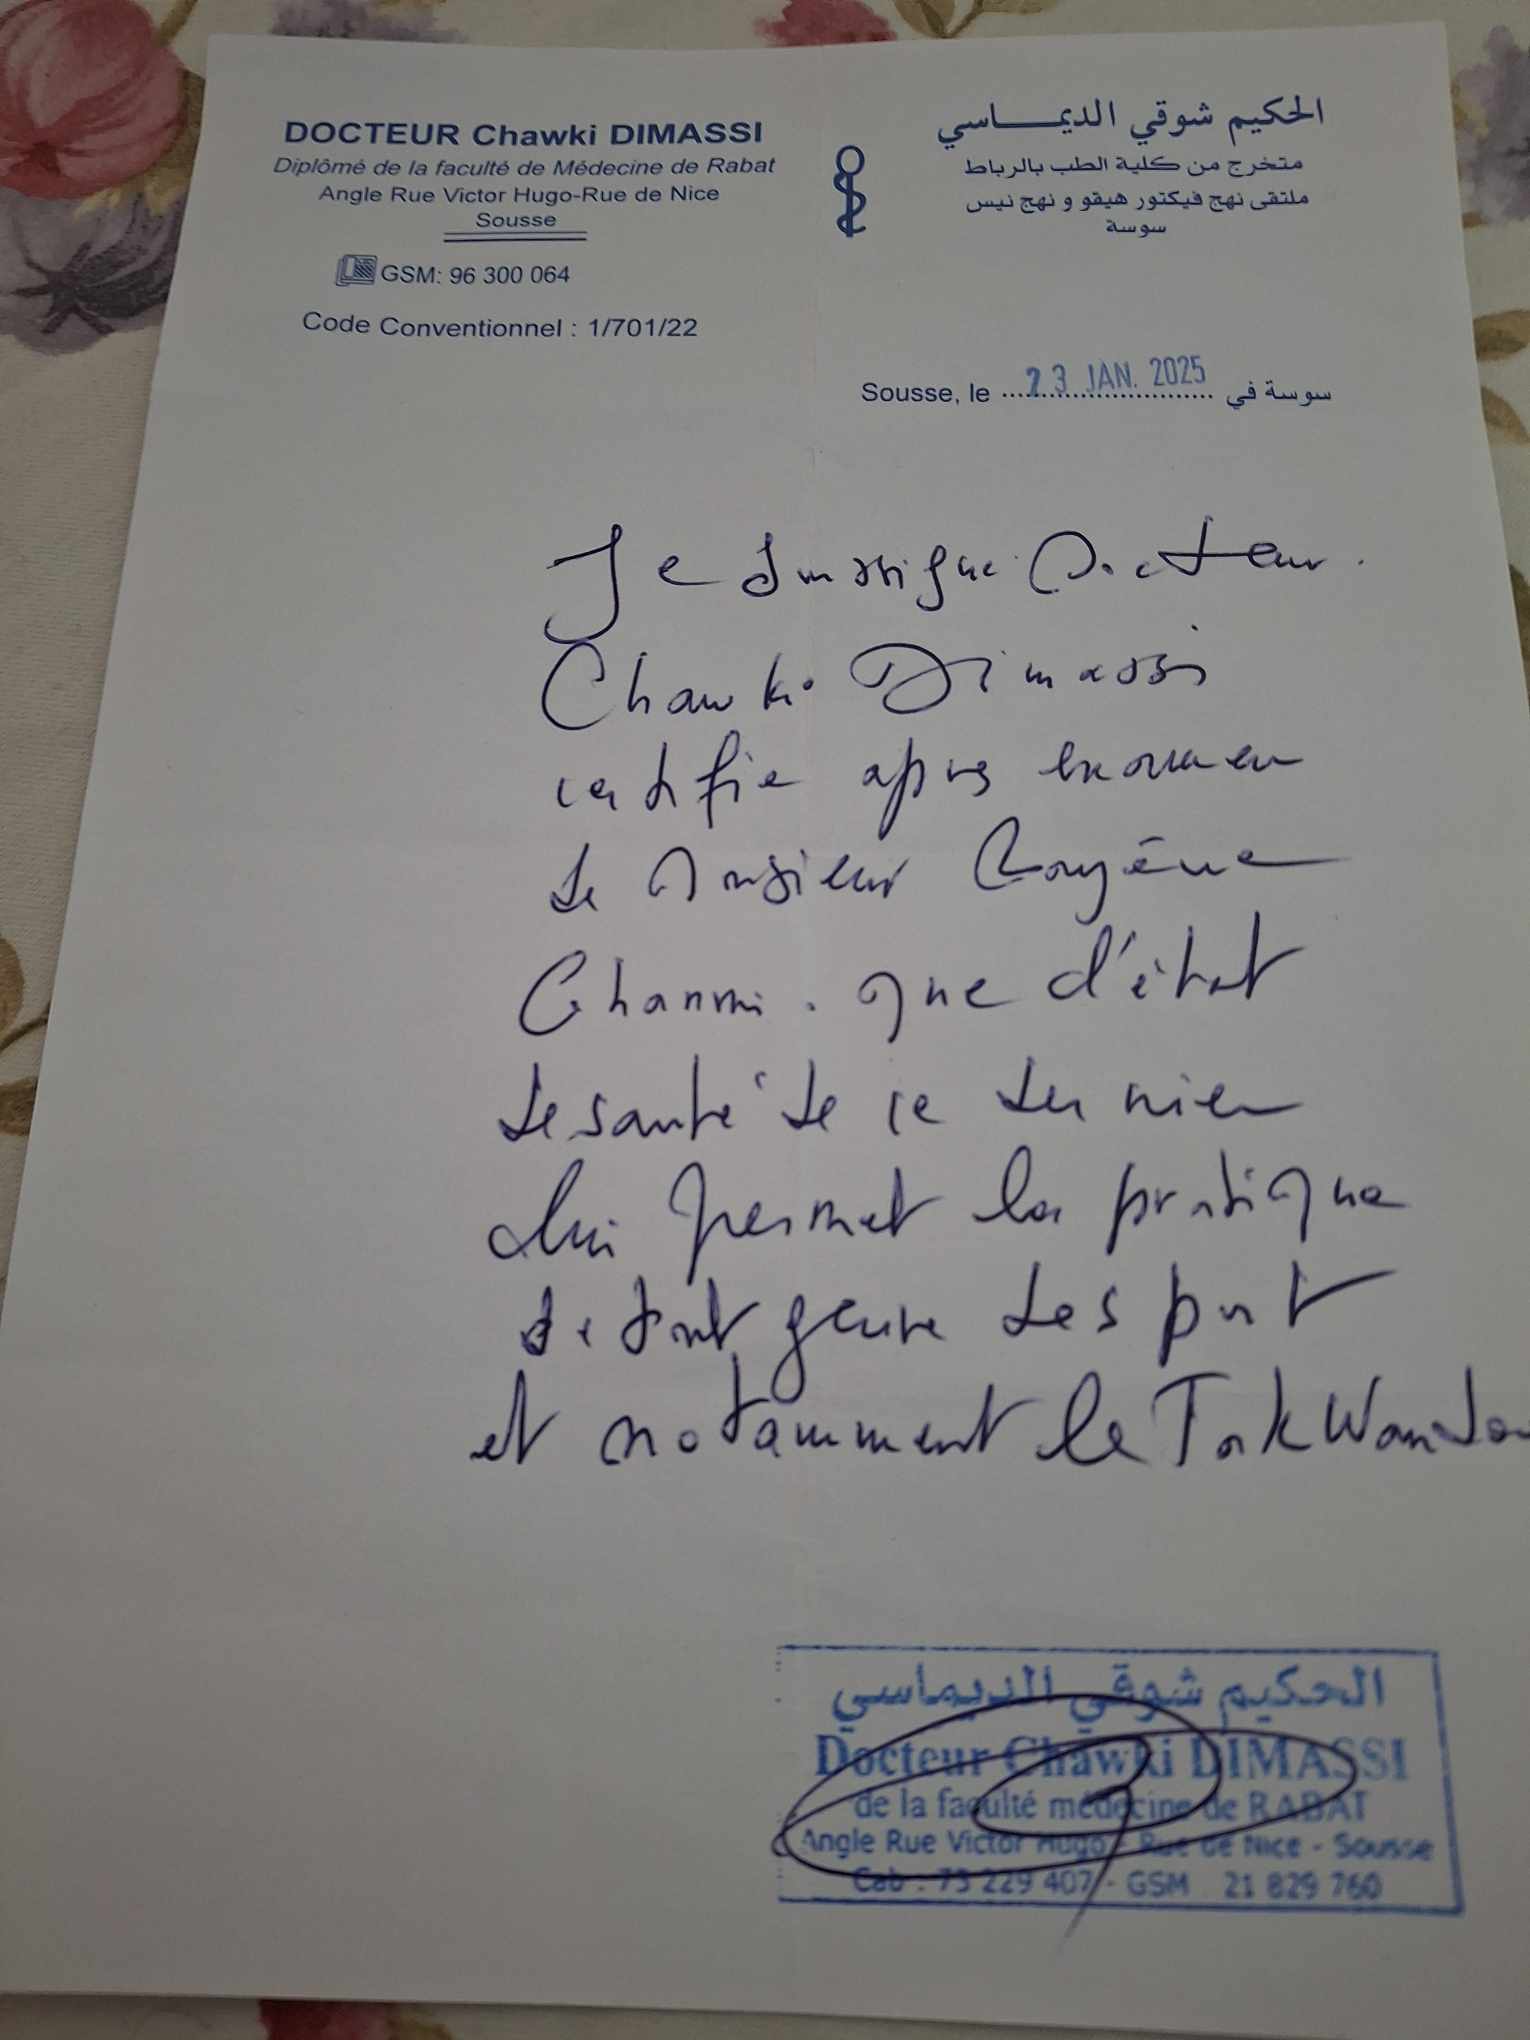 DOCTEUR Chawki DIMASSI
Diplômé de la faculté de Médecine de Rabat
Angle Rue Victor Hugo-Rue de Nice
Sousse
GSM: 96 300 064
Code Conventionnel : 1/701/22
الحكيم شوقي الديماسي
متخرج من كلية الطب بالرباط
ملتقى نهج فيكتور هيقو و نهج نيس
سوسة
Sousse, le 23 JAN. 2025 سوسة في
Je soussigne Docteur
Chawki Dimassi
certifie après examen
de Monsieur
Ghanmi. que l'état
de santé de ce dernier
lui permet la pratique
de tout genre de sport
et notamment le
الحكيم شوقي الديماسي
Docteur Chawki DIMASSI
de la faculté médecine de RABAT
Angle Rue Victor Hugo - Rue de Nice - Sousse
Cab : 73 229 407 - GSM 21 829 760